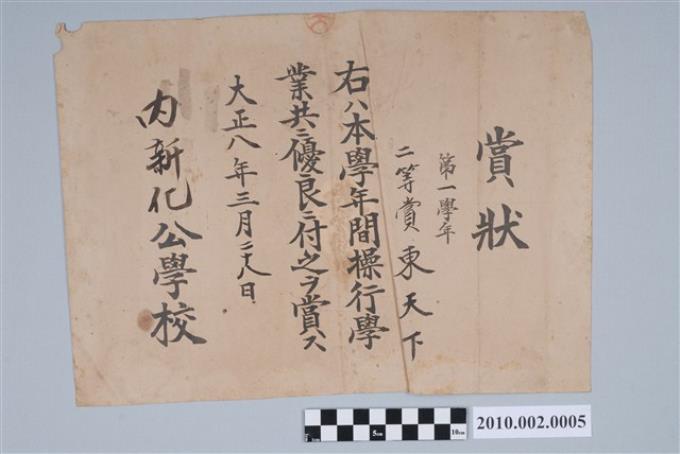 賞狀
第一學年
二等賞 東天下
右ハ本學年間操行學
業共ニ優良ニ付之ヲ賞ス
大正八年三月二十八日
內新化公學校
5cm
10cm
2010.002.0005